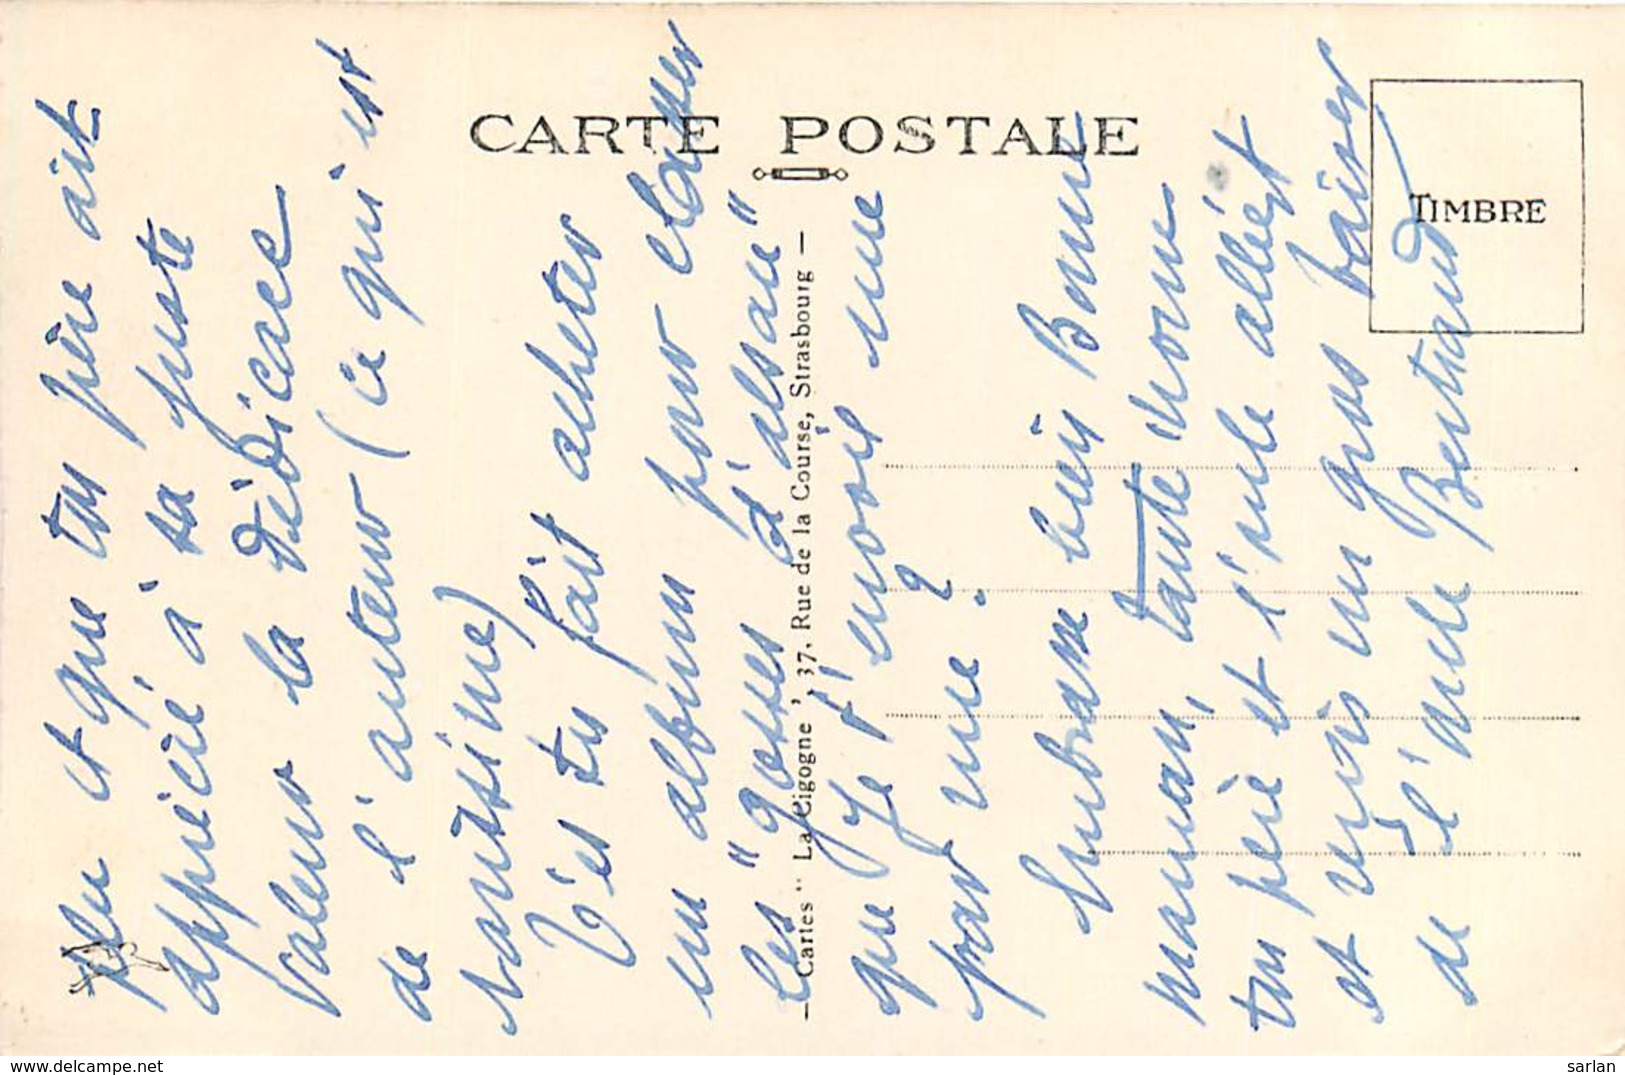 CARTE POSTALE
TIMBRE
Cartes "La Cigogne", 37, Rue de la Course, Strasbourg
plu et que ton père ait
apprécié à sa juste
valeur la dédicace
de l'auteur (ce qui est
rarissime)
T'es tu fait acheter
un album pour classer
les "gosses d'alsace"
que je t'envoie une
par une ?
Embrasse bien Bonne
maman, tante
ton père et l'oncle albert
et reçois un gros baiser
de l'oncle Bertrand
sarlan